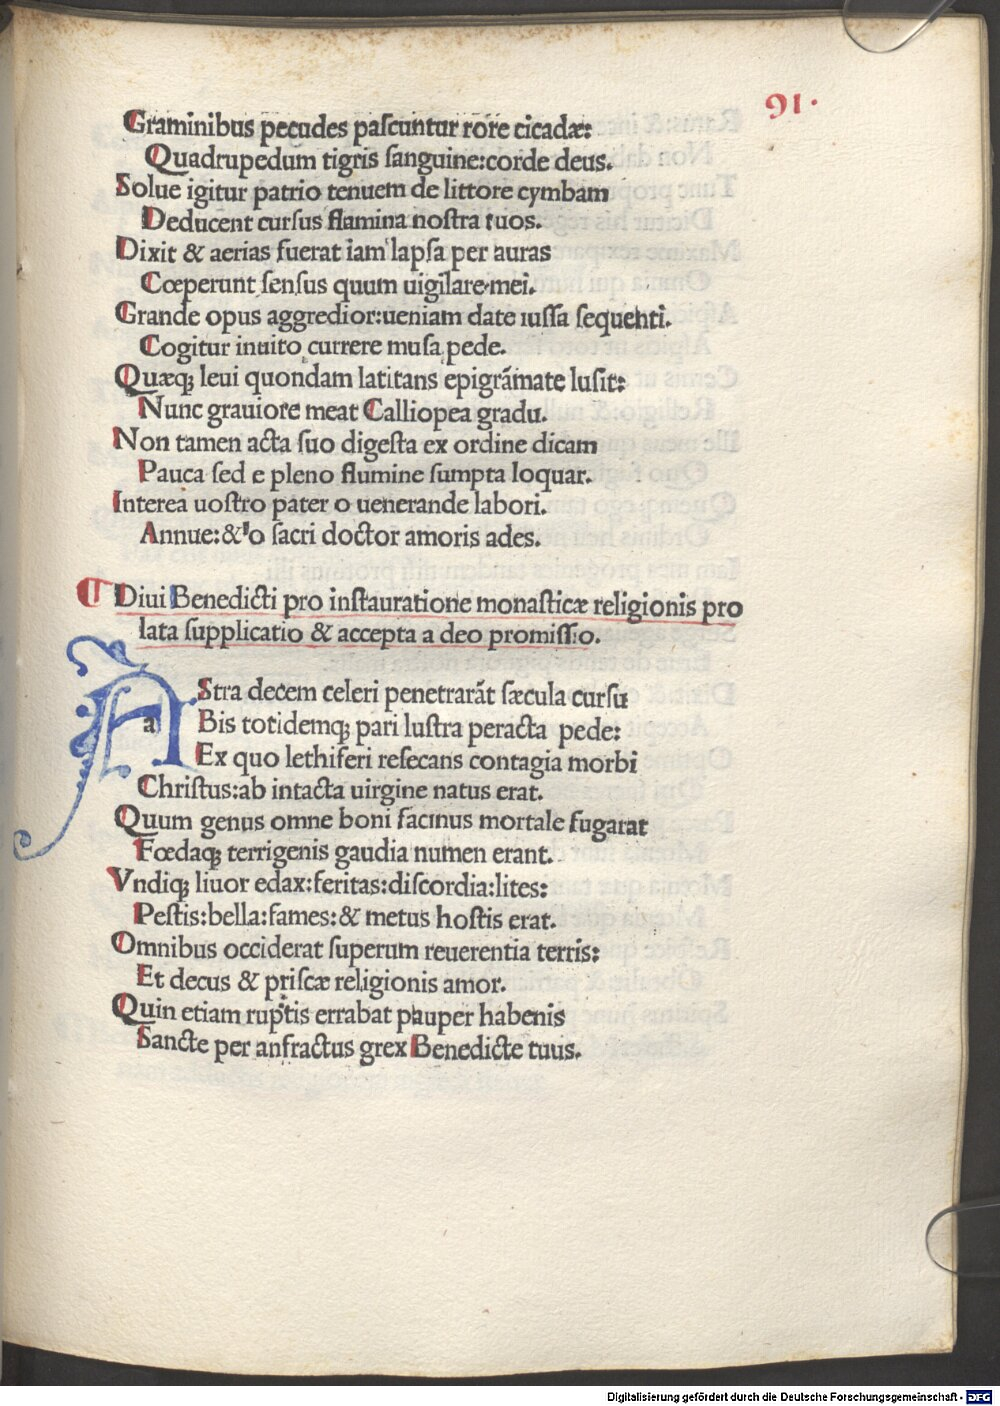 91.
Graminibus pecudes pascuntur rore cicadæ:
Quadrupedum tigris sanguine:corde deus.
Solue igitur patrio tenuem de littore cymbam
Deducent cursus flamina nostra tuos.
Dixit & aerias fuerat iam lapsa per auras
Cœperunt sensus quum uigilare mei.
Grande opus aggredior:ueniam date iussa sequenti.
Cogitur inuito currere musa pede.
Quæq; leui quondam latitans epigrãmate lusit:
Nunc grauiore meat Calliopea gradu.
Non tamen acta suo digesta ex ordine dicam
Pauca sed e pleno flumine sumpta loquar.
Interea uostro pater o uenerande labori.
Annue:& o sacri doctor amoris ades.
Diui Benedicti pro instauratione monasticæ religionis pro
lata supplicatio & accepta a deo promissio.
A Stra decem celeri penetrarãt sæcula cursu
a Bis totidemq; pari lustra peracta pede:
Ex quo lethiferi resecans contagia morbi
Christus:ab intacta uirgine natus erat.
Quum genus omne boni facinus mortale fugarat
Fœdaq; terrigenis gaudia numen erant.
Vndiq; liuor edax:feritas:discordia:lites:
Pestis:bella:fames:& metus hostis erat.
Omnibus occiderat superum reuerentia terris:
Et decus & priscæ religionis amor.
Quin etiam ruptis errabat pauper habenis
Sancte per anfractus grex Benedicte tuus.
Digitalisierung gefördert durch die Deutsche Forschungsgemeinschaft - DFG